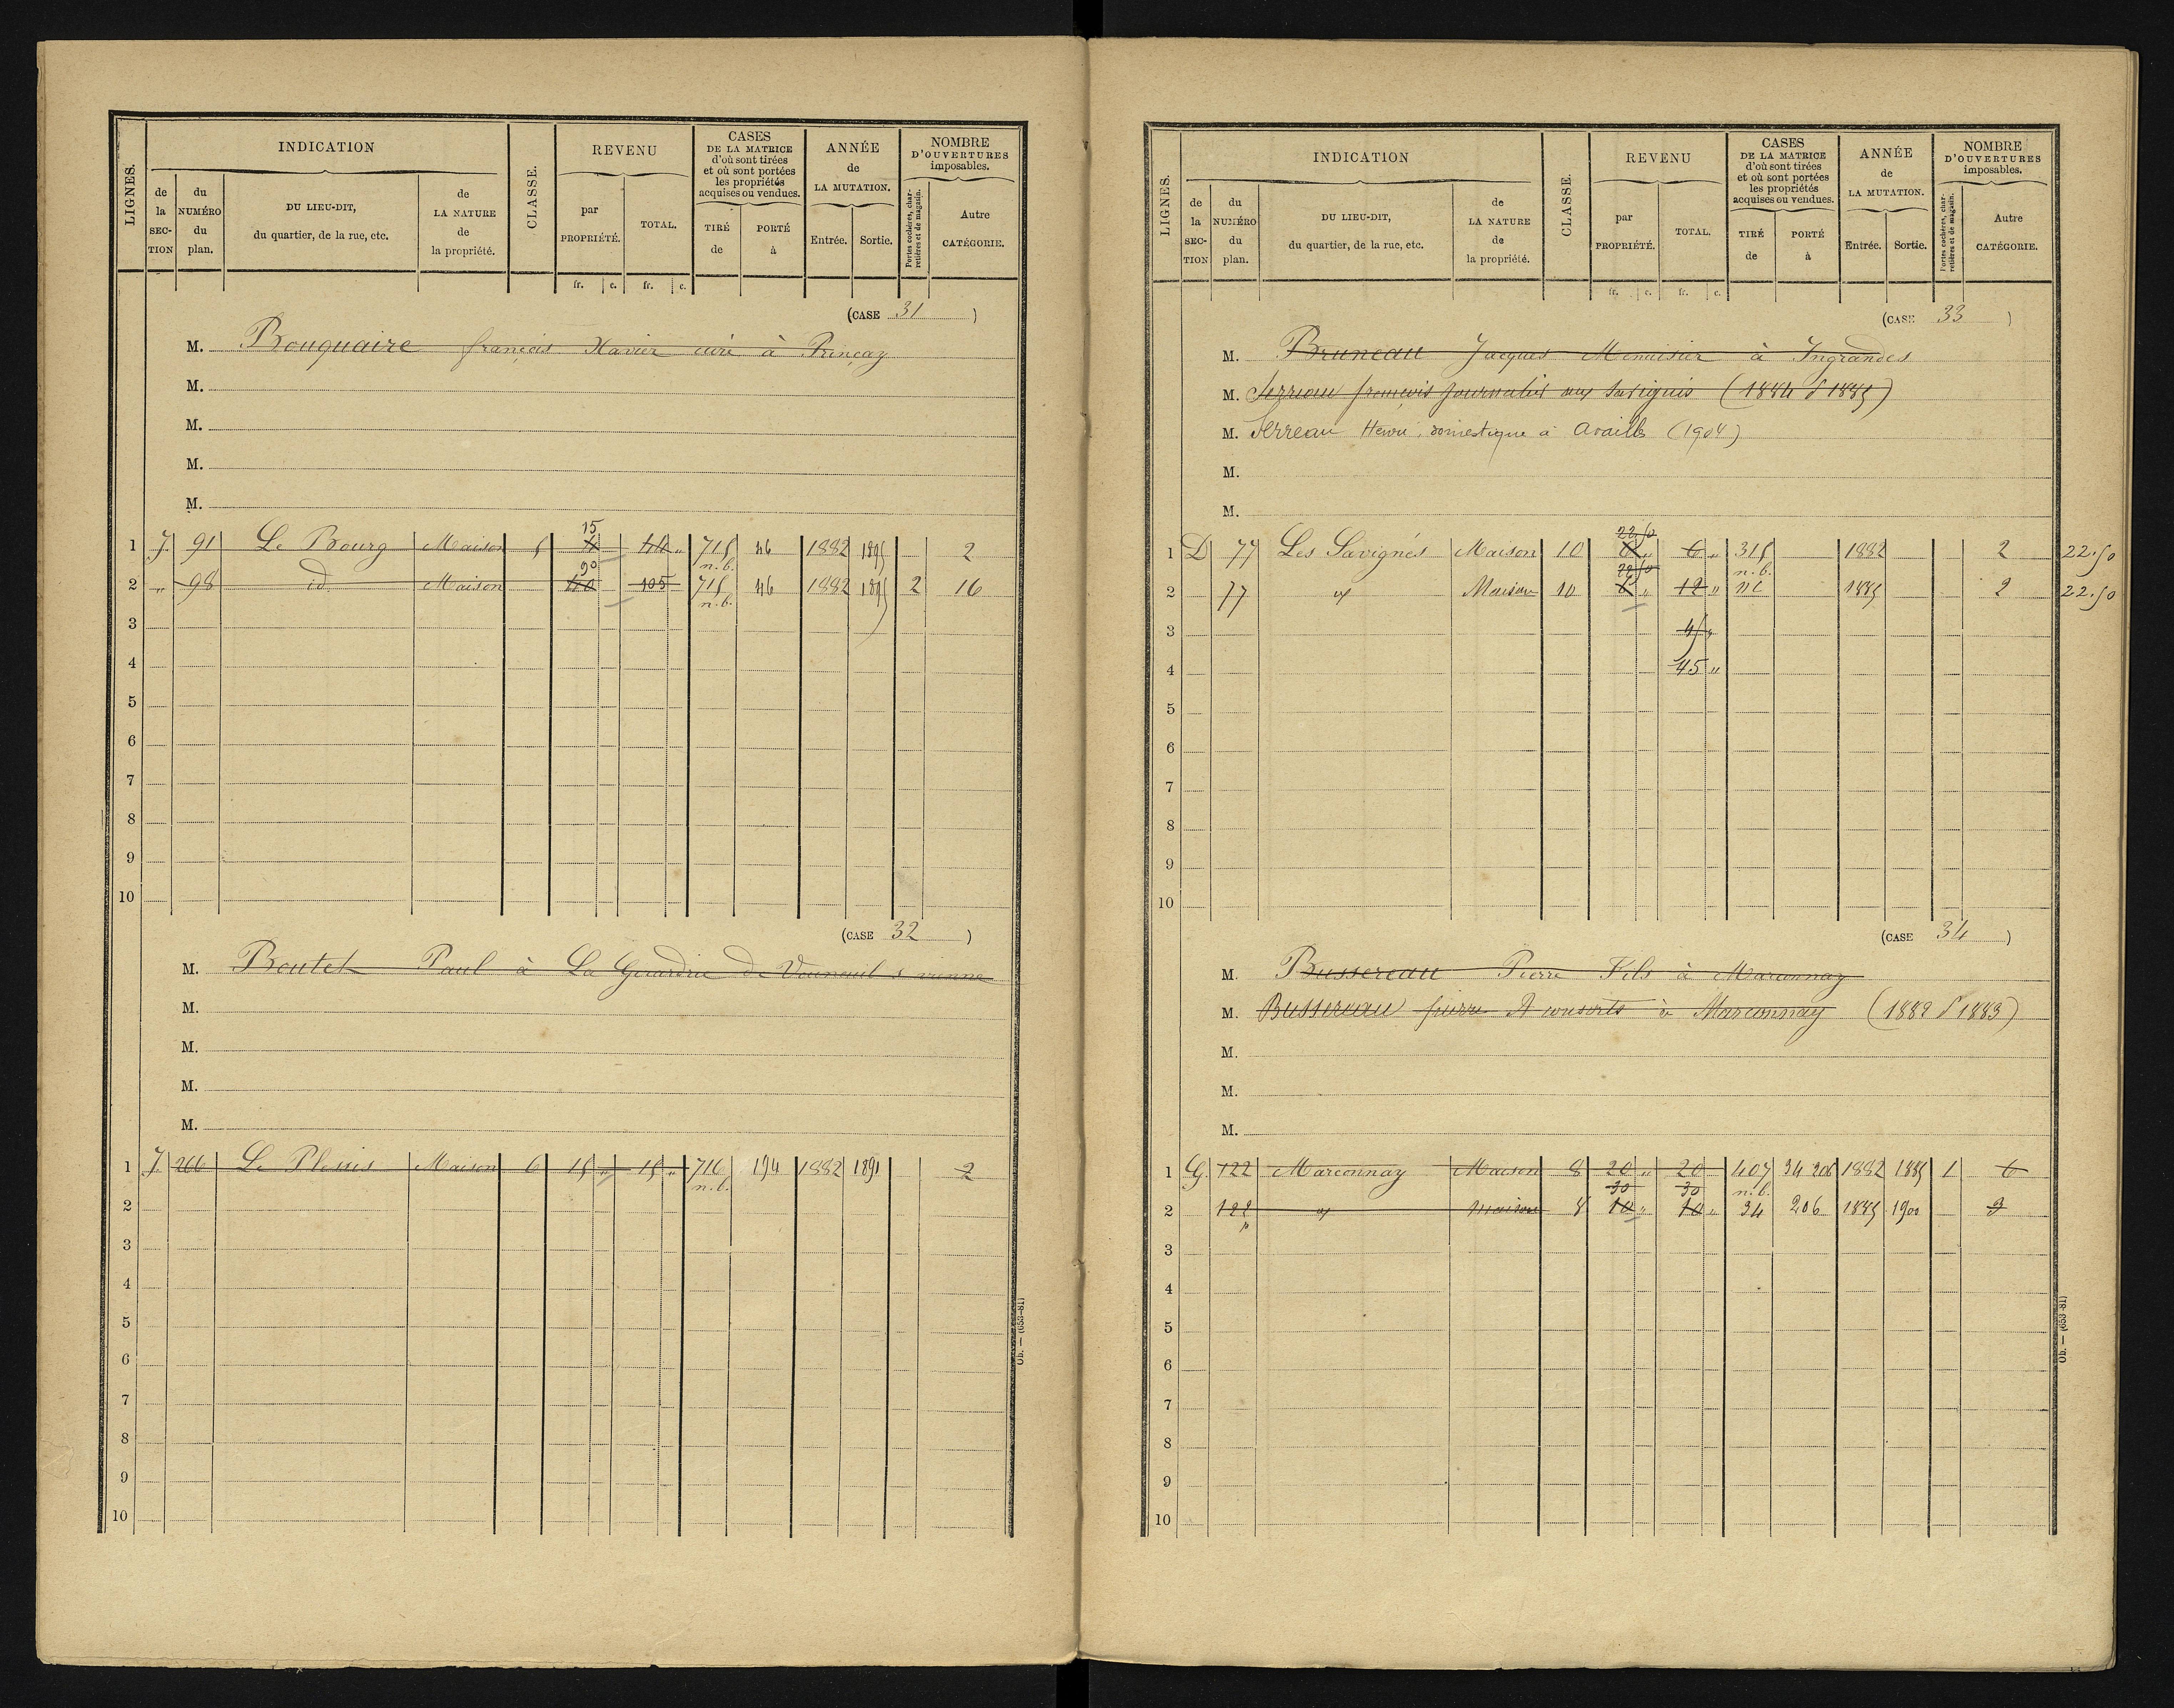 LIGNES.
INDICATION
de la SECTION
du NUMÉRO du plan.
DU LIEU-DIT, du quartier, de la rue, etc.
de LA NATURE de la propriété.
CLASSE.
REVENU
par PROPRIÉTÉ.
TOTAL.
fr. c. fr. c.
CASES DE LA MATRICE d'où sont tirées et où sont portées les propriétés acquises ou vendues.
TIRÉ de
PORTÉ à
ANNÉE de LA MUTATION.
Entrée. Sortie.
NOMBRE D'OUVERTURES imposables.
Portes cochères, charretières et de magasin.
Autre CATÉGORIE.
(CASE 31)
M. Bouquaire françois Xavier curé à Prinçay
M.
M.
M.
M.
1 J. 91 Le Bourg Maison 5 15 715 n.b. 46 1882 1895 2
2 " 98 id Maison 90 105 715 n.b. 46 1882 1895 2 16
3
4
5
6
7
8
9
10
(CASE 32)
M. Boutet Paul à La Gerardrie de Vouneuil s vienne
M.
M.
M.
M.
1 J. 266 Le Plessis Maison 6 15 " 15 " 716 n.b. 194 1882 1891 2
2
3
4
5
6
7
8
9
10
Ob. — (653-81)
LIGNES.
INDICATION
de la SECTION
du NUMÉRO du plan.
DU LIEU-DIT, du quartier, de la rue, etc.
de LA NATURE de la propriété.
CLASSE.
REVENU
par PROPRIÉTÉ.
TOTAL.
fr. c. fr. c.
CASES DE LA MATRICE d'où sont tirées et où sont portées les propriétés acquises ou vendues.
TIRÉ de
PORTÉ à
ANNÉE de LA MUTATION.
Entrée. Sortie.
NOMBRE D'OUVERTURES imposables.
Portes cochères, charretières et de magasin.
Autre CATÉGORIE.
(CASE 33)
M. Bruneau Jacques Menuisier à Ingrandes
M. Serreau françois Journalier aux Savignés (1884 P 1885)
M. Serreau Henri, domestique à Availles (1904)
M.
M.
1 D 77 Les Savignés Maison 10 22.50 6 " 6 " 315 n.b. 1882 2 22.50
2 77 Maison 10 22.50 6 " 12 " nc 1885 2 22.50
3 45 "
4 45 "
5
6
7
8
9
10
(CASE 34)
M. Bussereau Pierre Fils à Marconnay
M. Bussereau pierre & consorts à Marconnay (1882 P 1883)
M.
M.
M.
1 G. 122 Marconnay Maison 8 20 " 20 407 n.b. 34 206 1882 1885 1 6
2 122 p Maison 8 30 10 " 30 10 " 34 206 1885 1900 3
3
4
5
6
7
8
9
10
Ob. — (653-81)